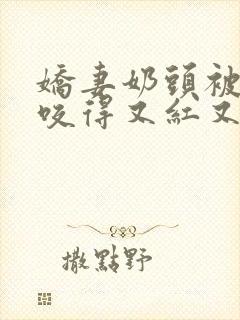 嬌妻奶頭被
咬得又紅又
撒點野